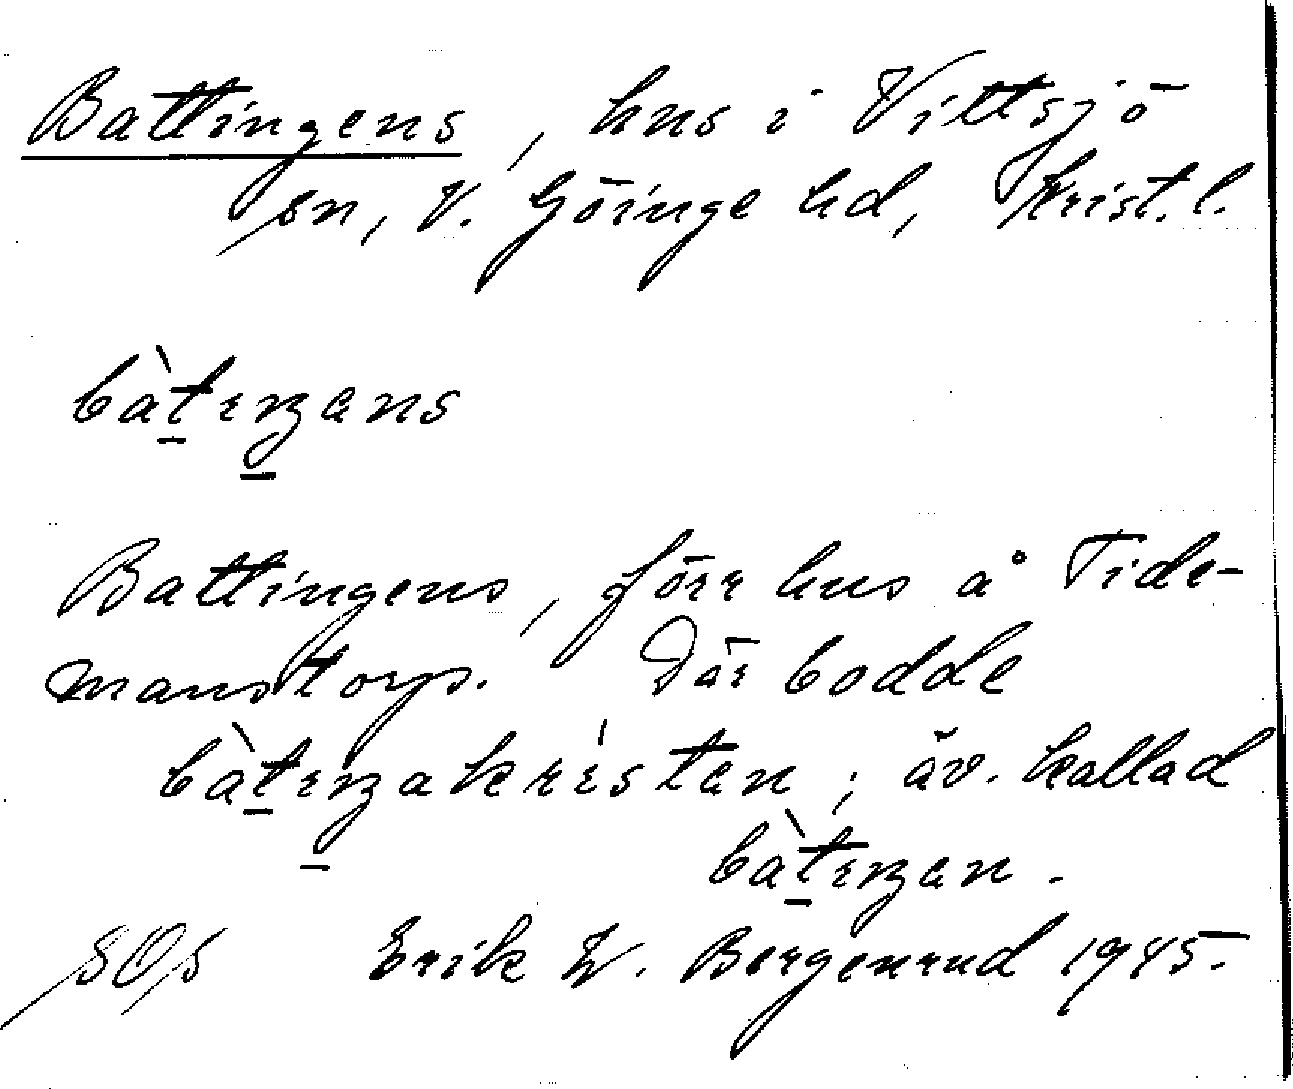 Battingens, hus i Vittsjö
sn, V. Göinge hd, Krist. l.
bàtıŋans
Battingens, förr hus å Tide-
manstorp. Där bodde
bàtıŋakrıstan; äv. kallad
bàtıŋan.
SOS Erik W. Bergenrud 1945.